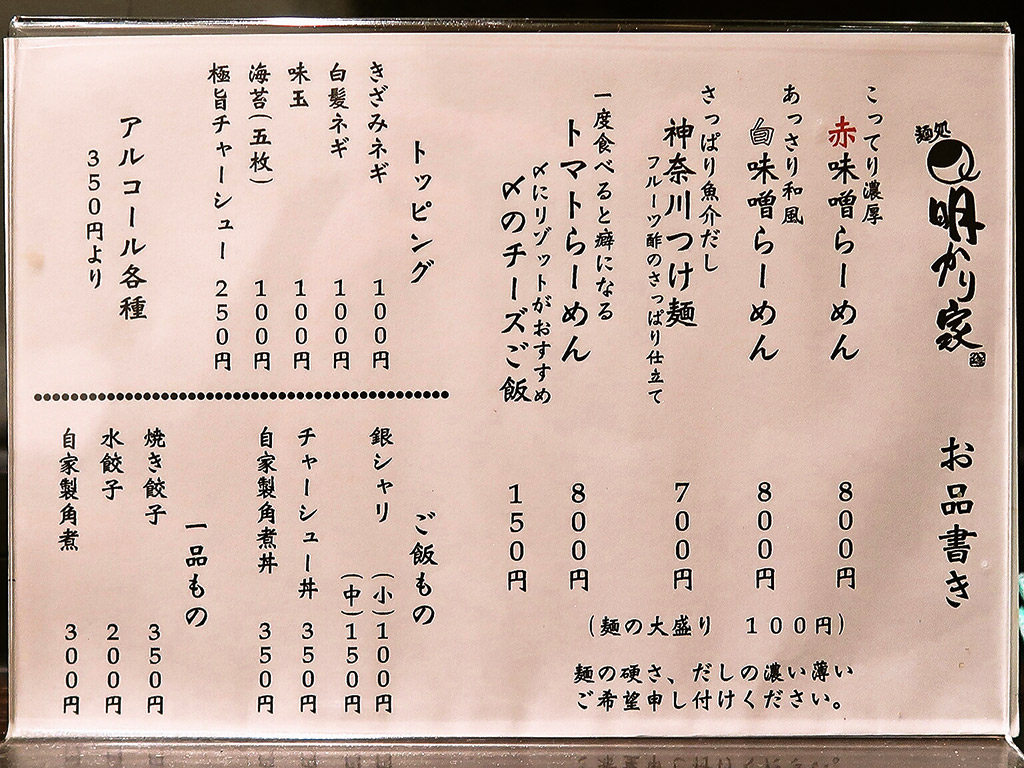 麺処
明かり家
お品書き
こってり濃厚
赤味噌らーめん 800円
あっさり和風
白味噌らーめん 800円
さっぱり魚介だし
神奈川つけ麺 700円
フルーツ酢のさっぱり仕立て
一度食べると癖になる
トマトらーめん 800円
〆にリゾットがおすすめ
〆のチーズご飯 150円
(麺の大盛り 100円)
麺の硬さ、だしの濃い薄い
ご希望申し付けください。
トッピング
きざみネギ 100円
白髪ネギ 100円
味玉 100円
海苔(五枚) 100円
極旨チャーシュー 250円
アルコール各種
350円より
ご飯もの
銀シャリ (小)100円
(中)150円
チャーシュー丼 350円
自家製角煮丼 350円
一品もの
焼き餃子 350円
水餃子 200円
自家製角煮 300円